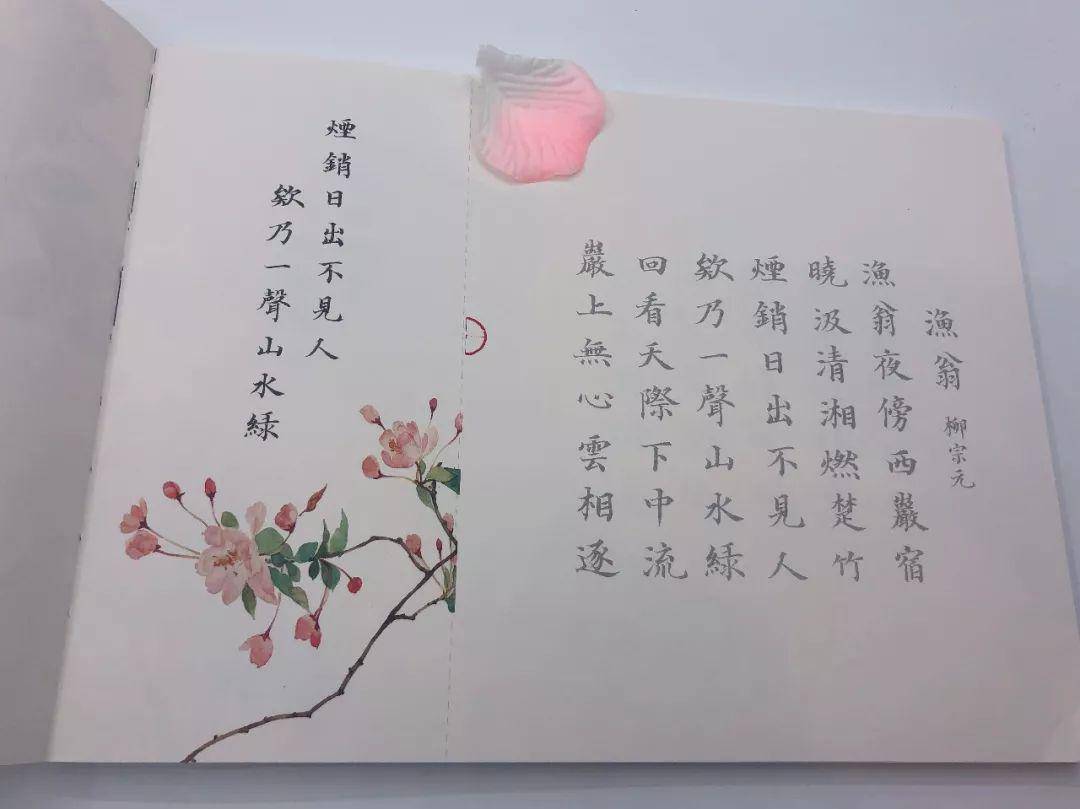 煙銷日出不見人
欸乃一聲山水綠
漁翁
柳宗元
漁翁夜傍西巖宿
曉汲清湘燃楚竹
煙銷日出不見人
欸乃一聲山水綠
回看天際下中流
巖上無心雲相逐